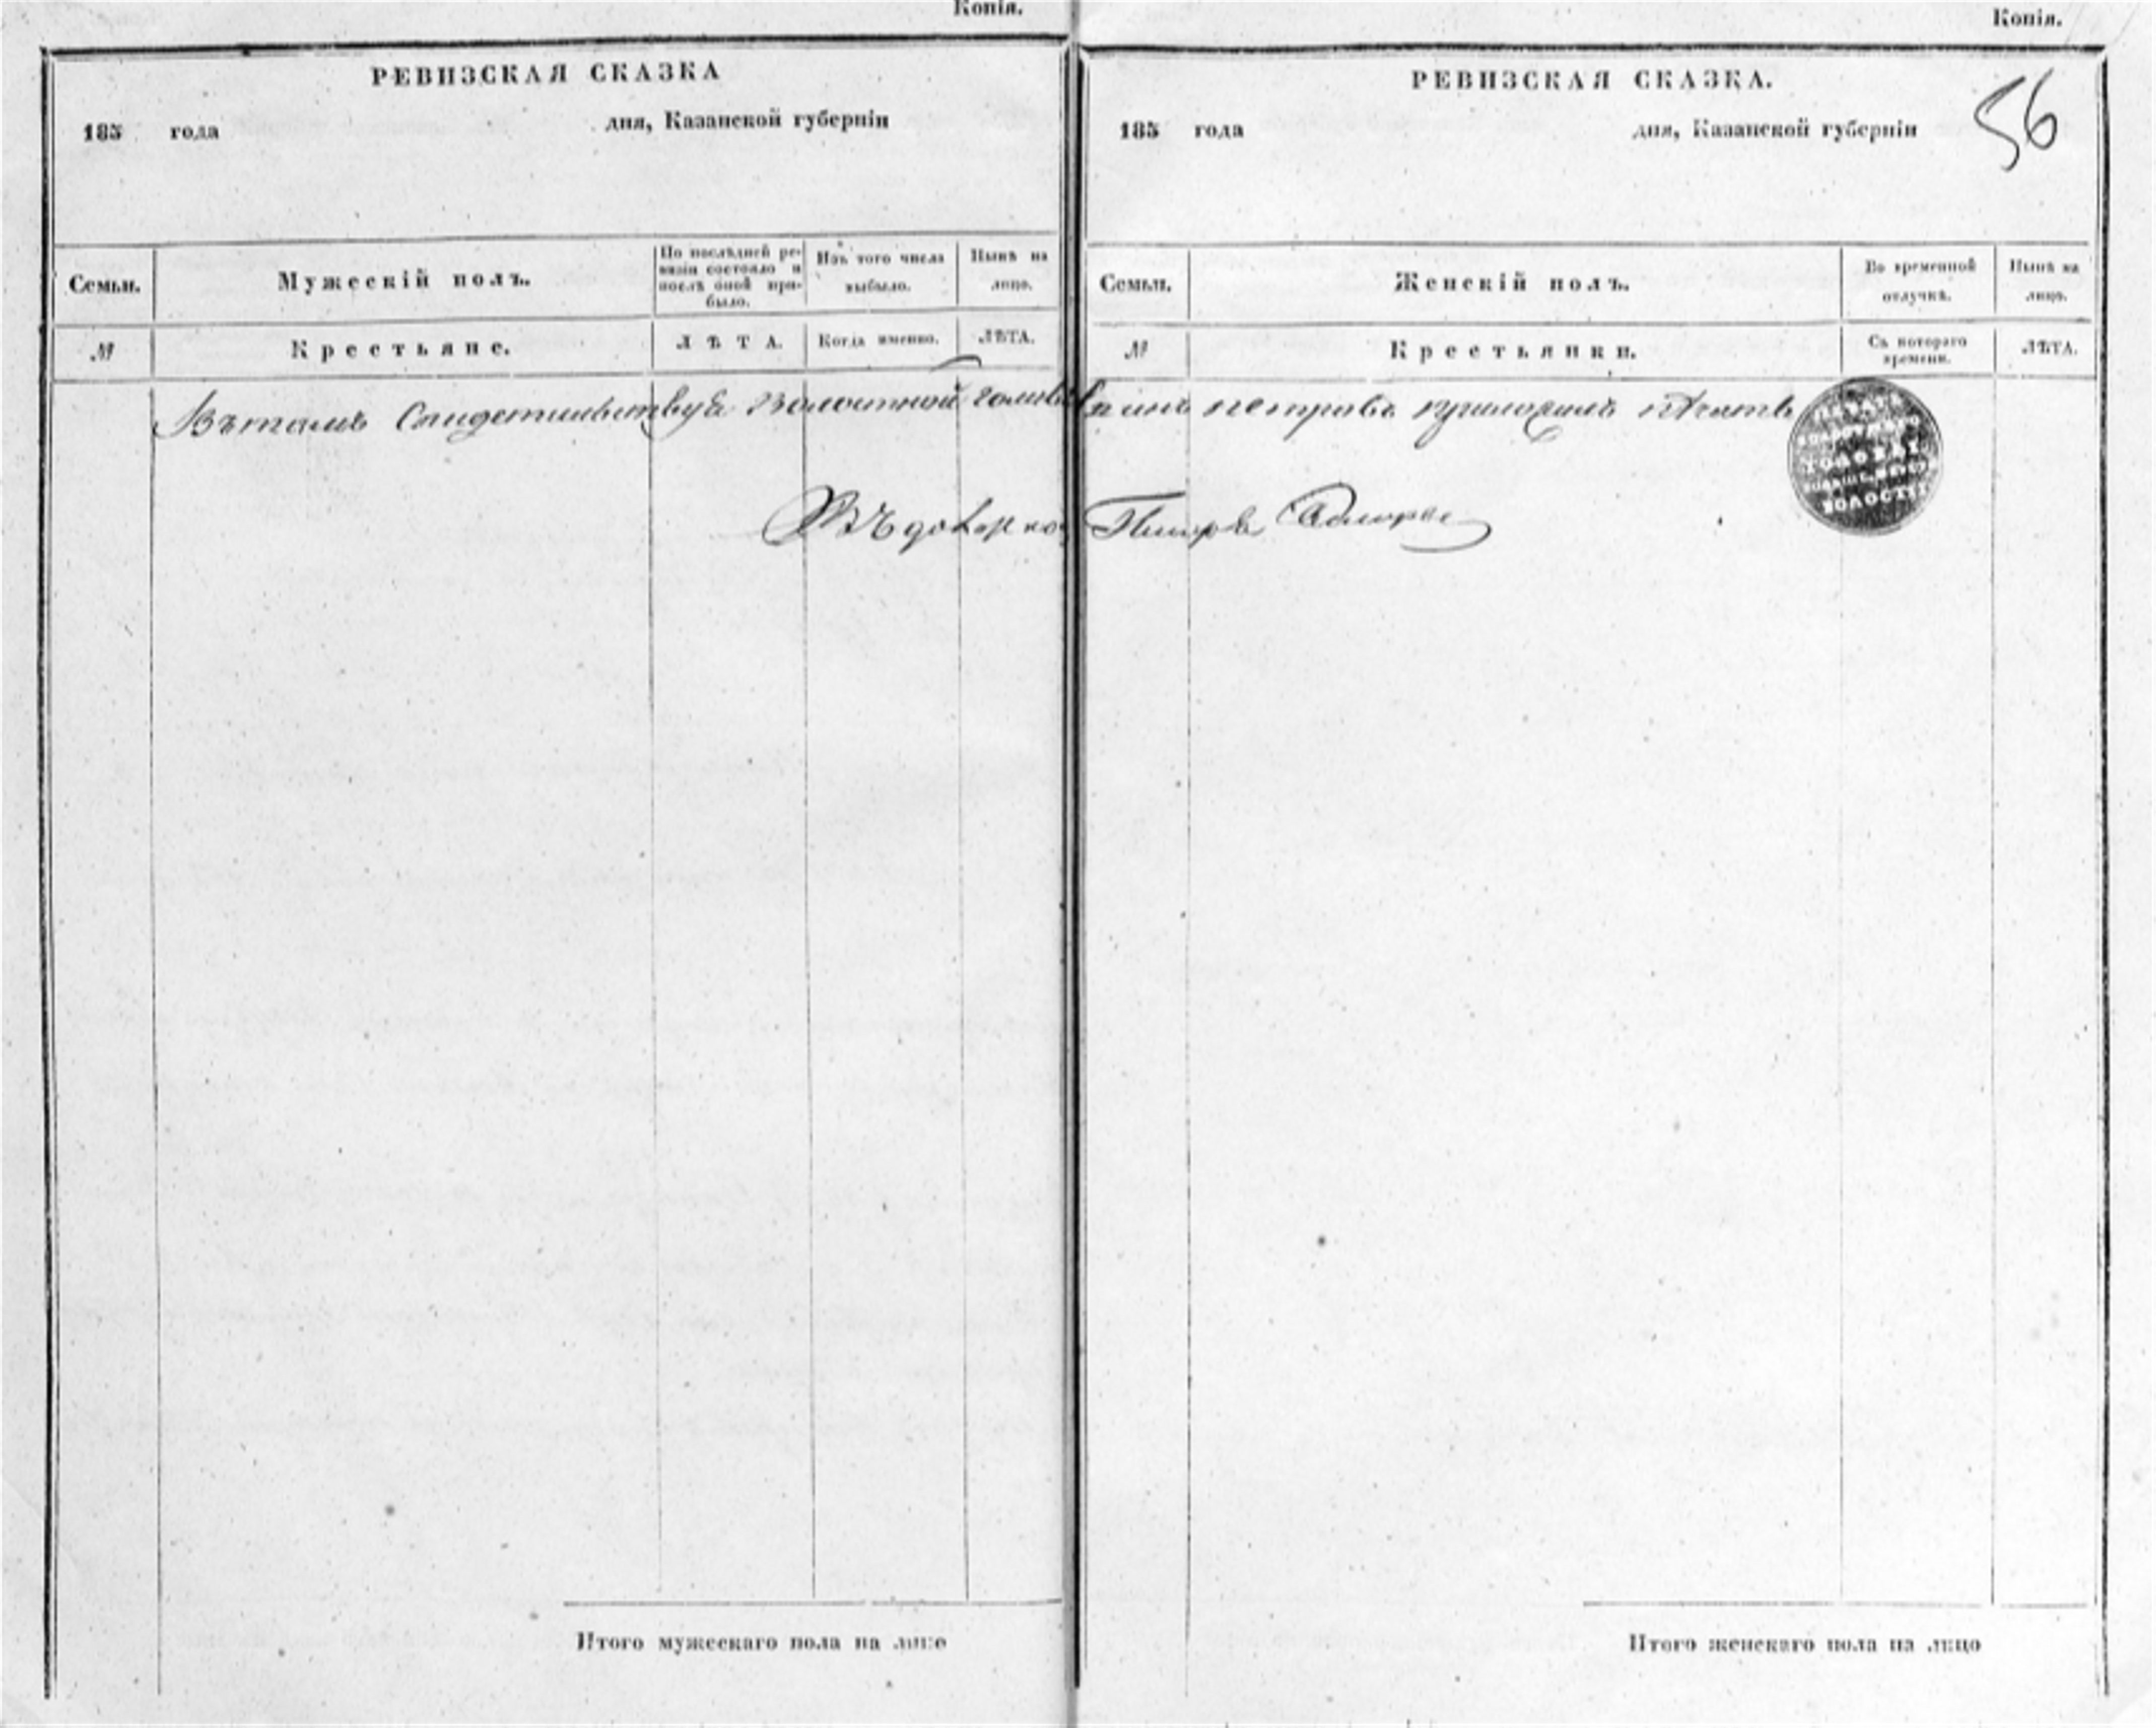 Копія.
РЕВИЗСКАЯ СКАЗКА
185 года дня, Казанской губерніи
Семьи.
Мужескій полъ.
По послѣдней ре-
визіи состояло и
послѣ оной при-
было.
Изъ того числа
выбыло.
Нынѣ на
лицо.
№
Крестьяне.
ЛѢТА.
Когда именно.
ЛѢТА.
Въ томъ Свидетельствуа Волостной голова
Въдовѣрно
Итого мужескаго пола на лицо
Копія.
РЕВИЗСКАЯ СКАЗКА.
56
185 года дня, Казанской губерніи
Семьи.
Женскій полъ.
Во временной
отлучкѣ.
Нынѣ на
лицо.
№
Крестьянки.
Съ котораго
времени.
ЛѢТА.
петровъ приложилъ пѣчать
ВОЛОСТИ
Итого женскаго пола на лицо